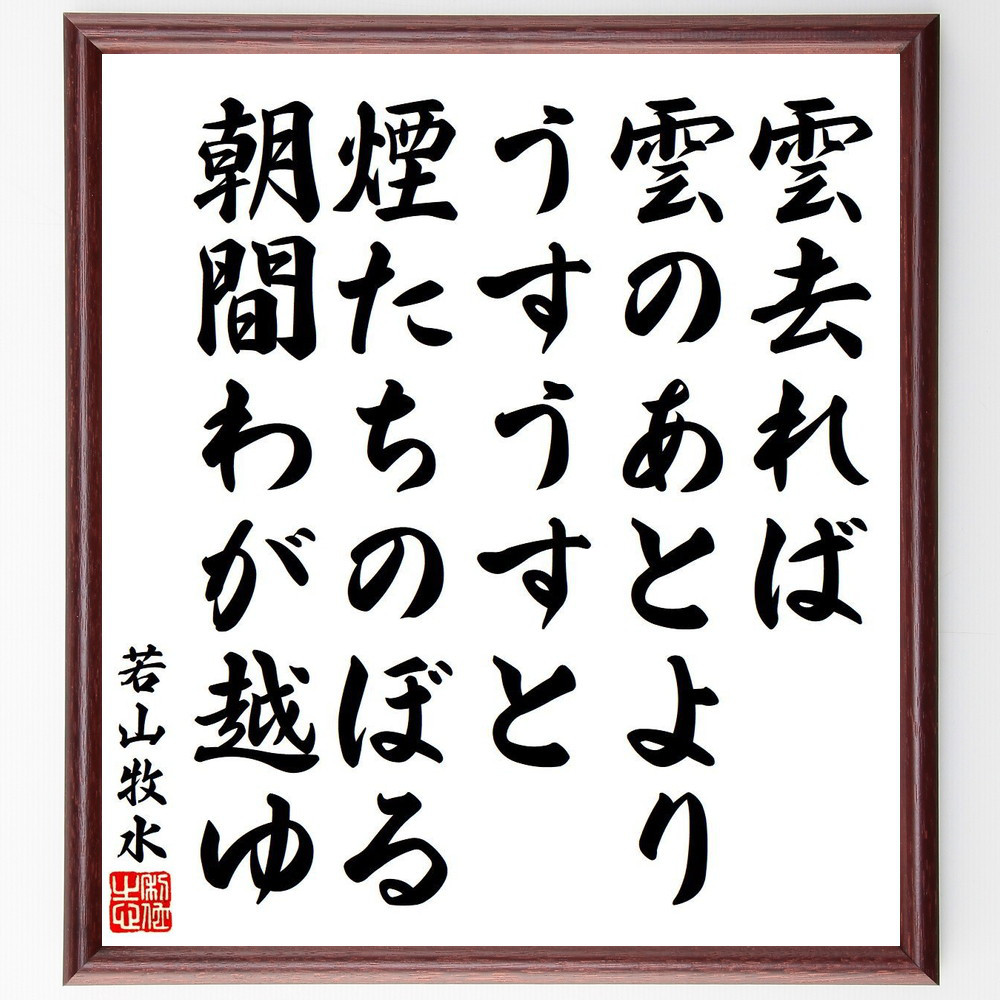 雲去れば
雲のあとより
うすうすと
煙たちのぼる
朝間わが越ゆ
若山牧水